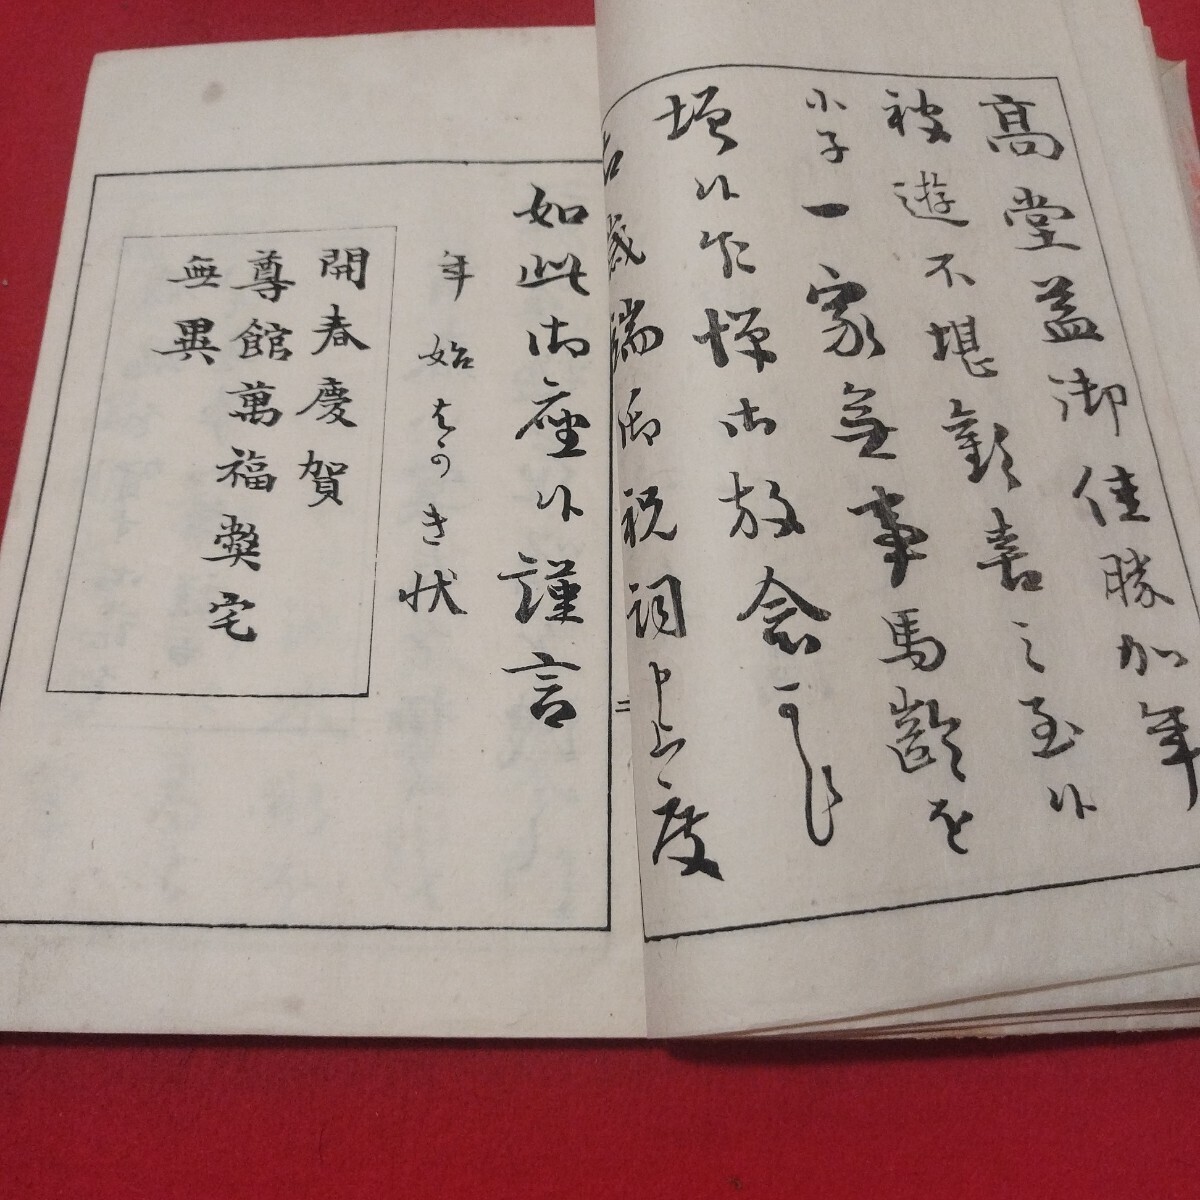 高堂益御佳勝加年
被遊不堪歓喜之至候
小子一家無事馬齢を
増候乍憚御放念可被下
右歳端御祝詞申上度
二
如此御座候謹言
年始はかき状
開春慶賀
尊館萬福弊宅
無異